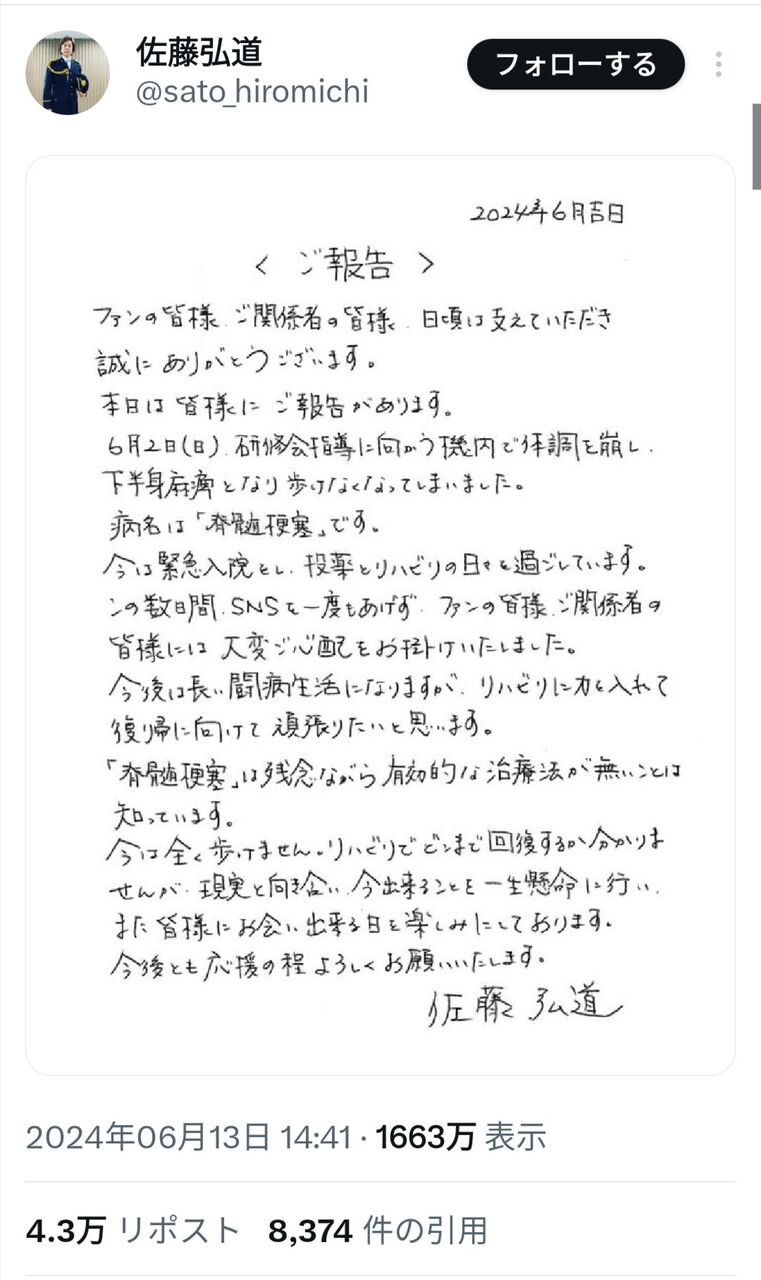 佐藤弘道
@sato_hiromichi
フォローする
2024年6月吉日
< ご報告 >
ファンの皆様、ご関係者の皆様、日頃は支えていただき
誠にありがとうございます。
本日は皆様にご報告があります。
6月2日(日)、研修会指導に向かう機内で体調を崩し、
下半身麻痺となり歩けなくなってしまいました。
病名は「脊髄梗塞」です。
今は緊急入院とし、投薬とリハビリの日々を過ごしています。
この数日間、SNSを一度もあげず、ファンの皆様、ご関係者の
皆様には大変ご心配をお掛けいたしました。
今後は長い闘病生活になりますが、リハビリに力を入れて
復帰に向けて頑張りたいと思います。
「脊髄梗塞」は残念ながら有効的な治療法が無いことは
知っています。
今は全く歩けません。リハビリでどこまで回復するか分かりま
せんが、現実と向き合い、今出来ることを一生懸命に行い、
また皆様にお会い出来る日を楽しみにしております。
今後とも応援の程よろしくお願いいたします。
佐藤弘道
2024年06月13日 14:41 · 1663万 表示
4.3万 リポスト 8,374 件の引用